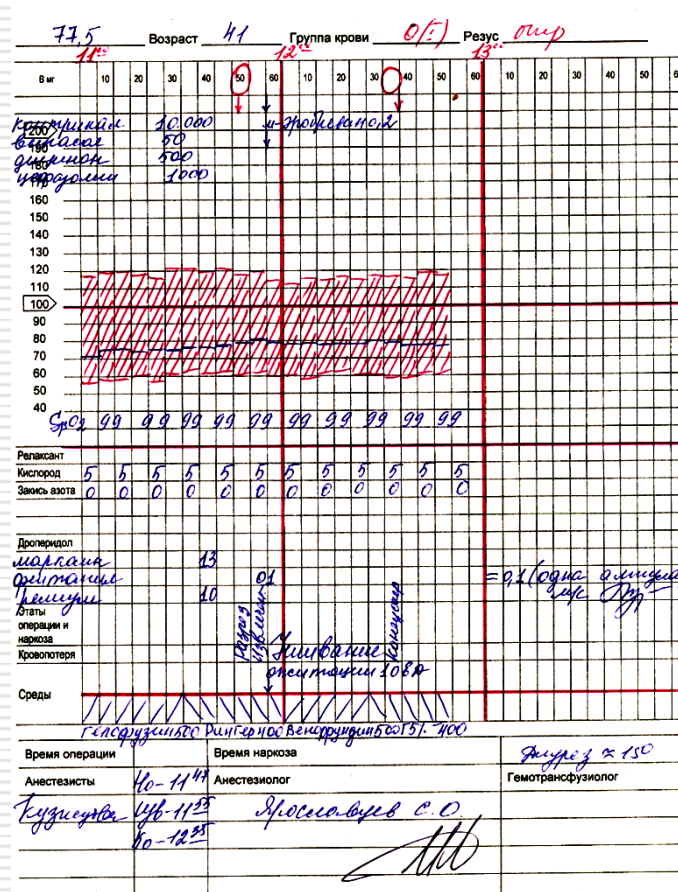 77,5 Возраст 41 Группа крови O(I) Резус отр
11⁰⁰ 12⁰⁰ 13⁰⁰
В мг 10 20 30 40 50 60 10 20 30 40 50 60 10 20 30 40 50 6
контрикал 10.000
200
50
190
дицинон 500
180
цефазолин 1000
170
160
150
140
130
120
110
100
90
80
70
60
50
40
SpO2 99 99 99 99 99 99 99 99 99 99 99
Релаксант
Кислород 5 5 5 5 5 5 5 5 5 5 5 5
Закись азота 0 0 0 0 0 0 0 0 0 0 0 0
Дроперидол
маркаин 13
01 = 0,1 (одна ампула
реланиум 10
Этапы операции и наркоза
Разрез
Извлечен
Ушивание
конец опер
Кровопотеря
Среды
Гелофузин 500 Рингер 400 Венофундин 500
Время операции Время наркоза Диурез ≈ 150
Анестезисты Но-11⁴⁷ Анестезиолог Гемотрансфузиолог
Кузнецова Изв-11⁵⁵ Ярославцев С.О.
Ко-12³⁵